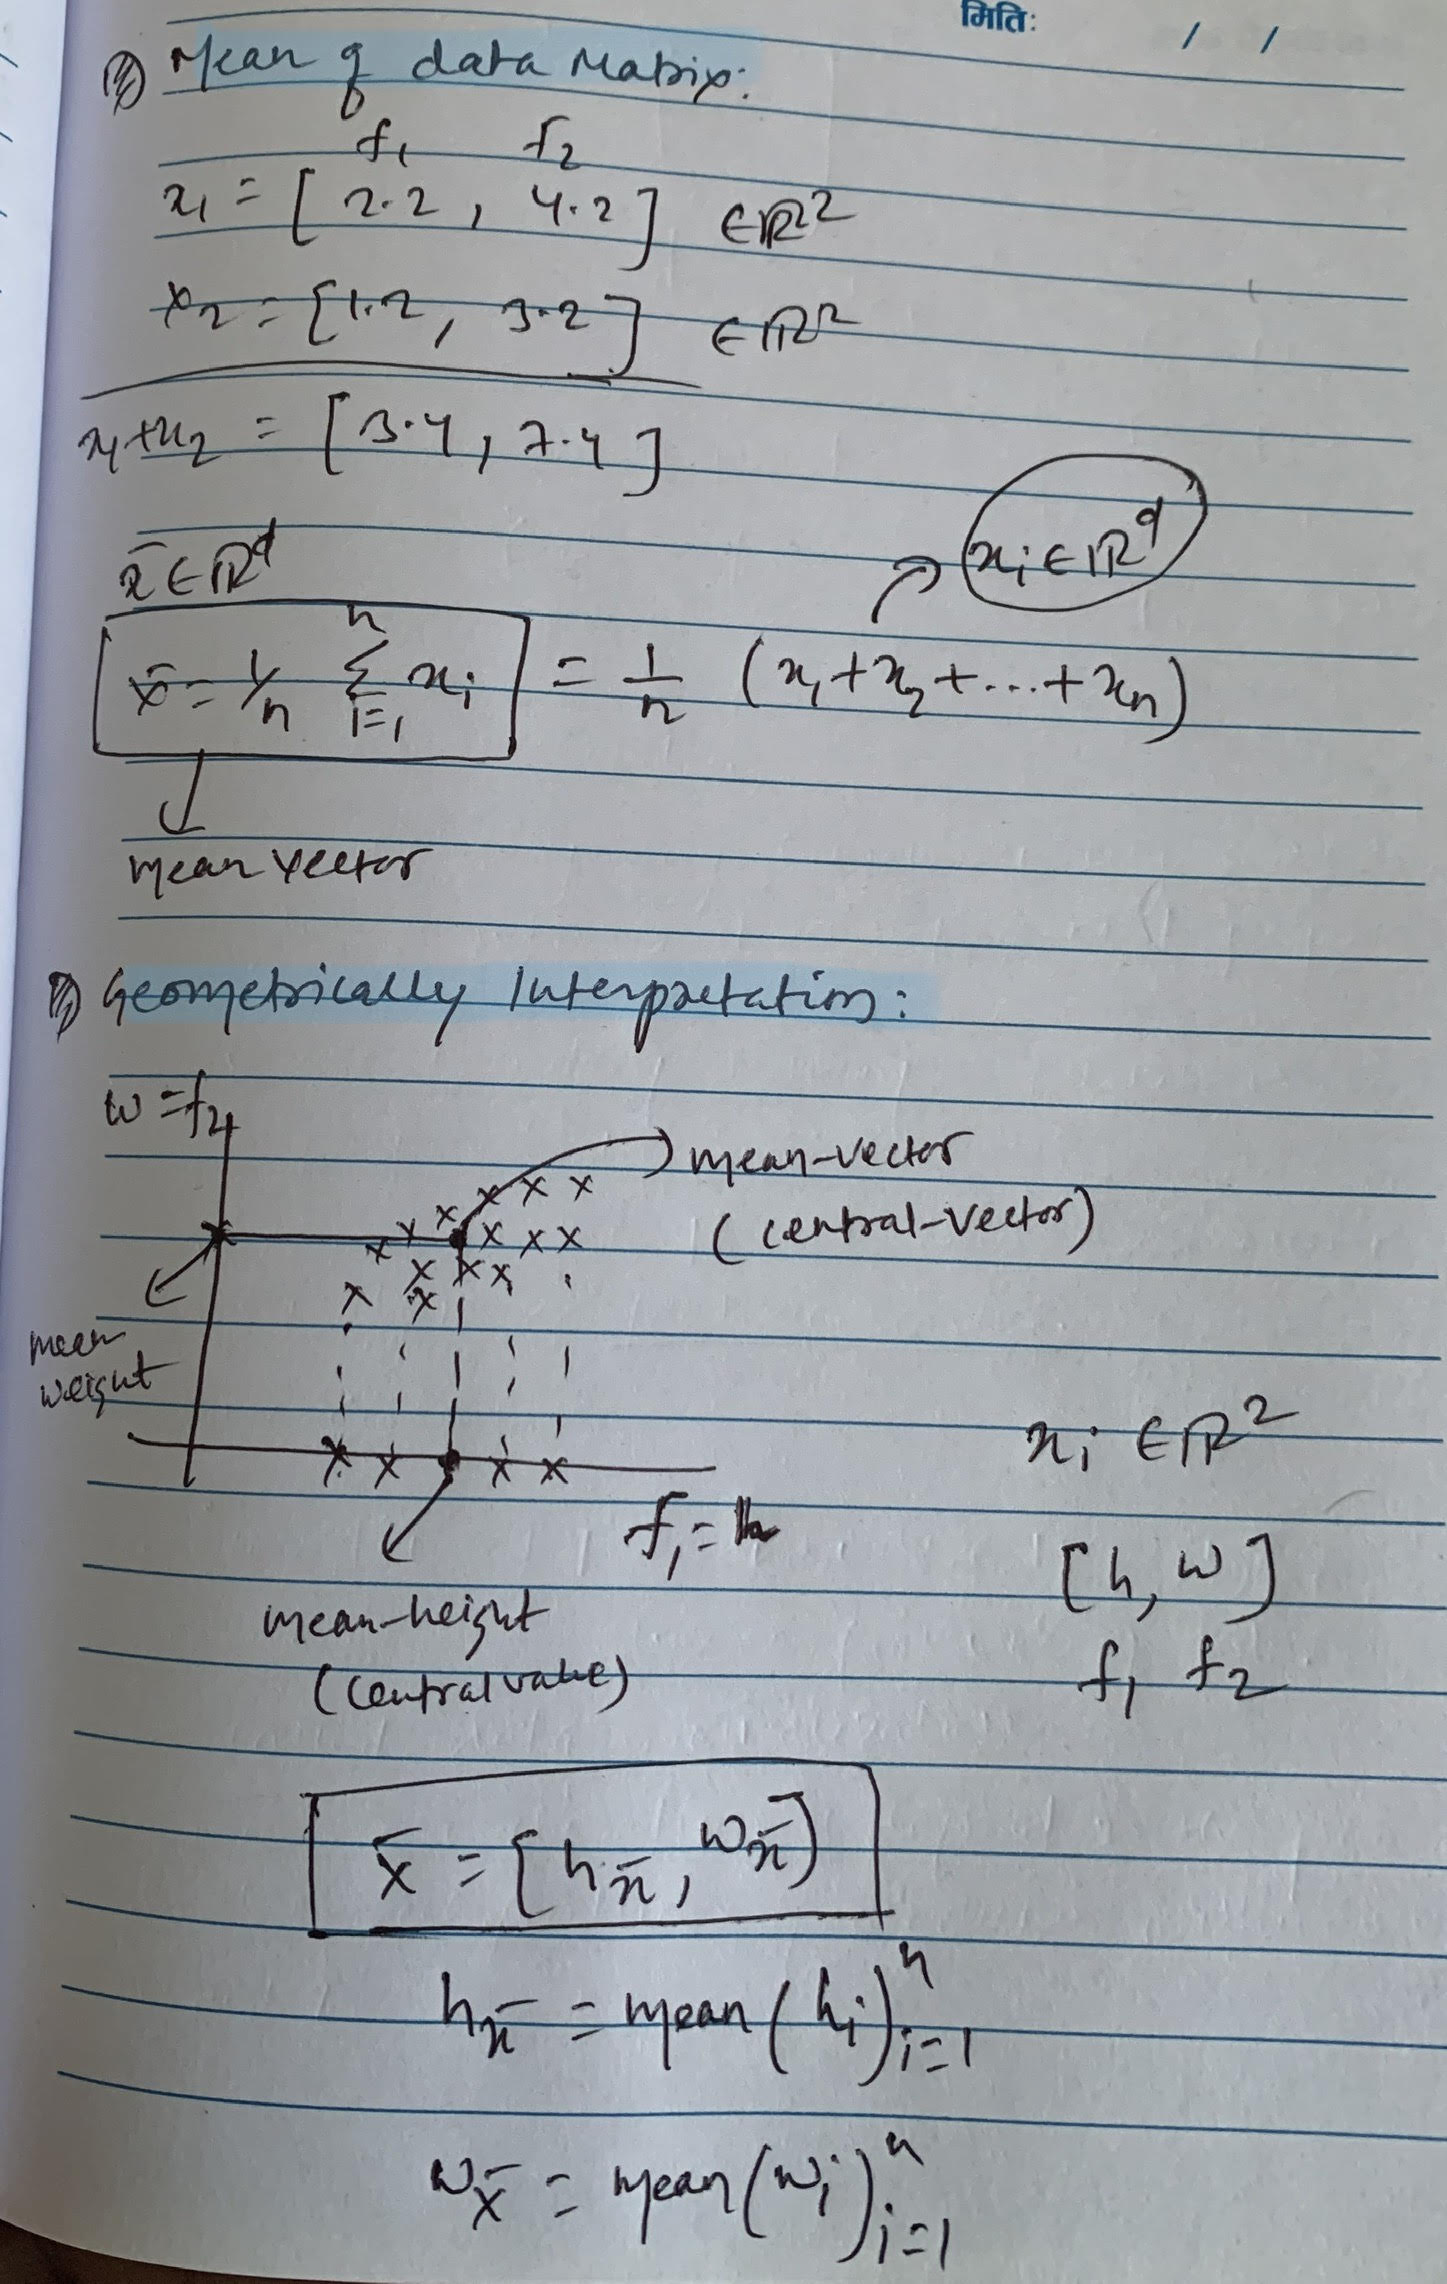 मिति: / /
Mean of data Matrix:
f₁ f₂
x₁ = [ 2.2 , 4.2 ] ∈ℝ²
x₂ = [1.2, 3.2] ∈ℝ²
x₁+x₂ = [3.4, 7.4]
x̄ ∈ ℝᵈ
xᵢ ∈ ℝᵈ
x̄ = 1/n Σⁿᵢ₌₁ xᵢ = 1/n (x₁+x₂+...+xₙ)
mean vector
Geometrically Interpretation:
w = f₂
mean-vector
(central-vector)
mean
weight
xᵢ ∈ ℝ²
f₁ = h
[h, w]
mean-height
f₁ f₂
(central value)
x̄ = [h x̄, w x̄]
h x̄ = mean(hᵢ)ⁿᵢ₌₁
w x̄ = mean(wᵢ)ⁿᵢ₌₁